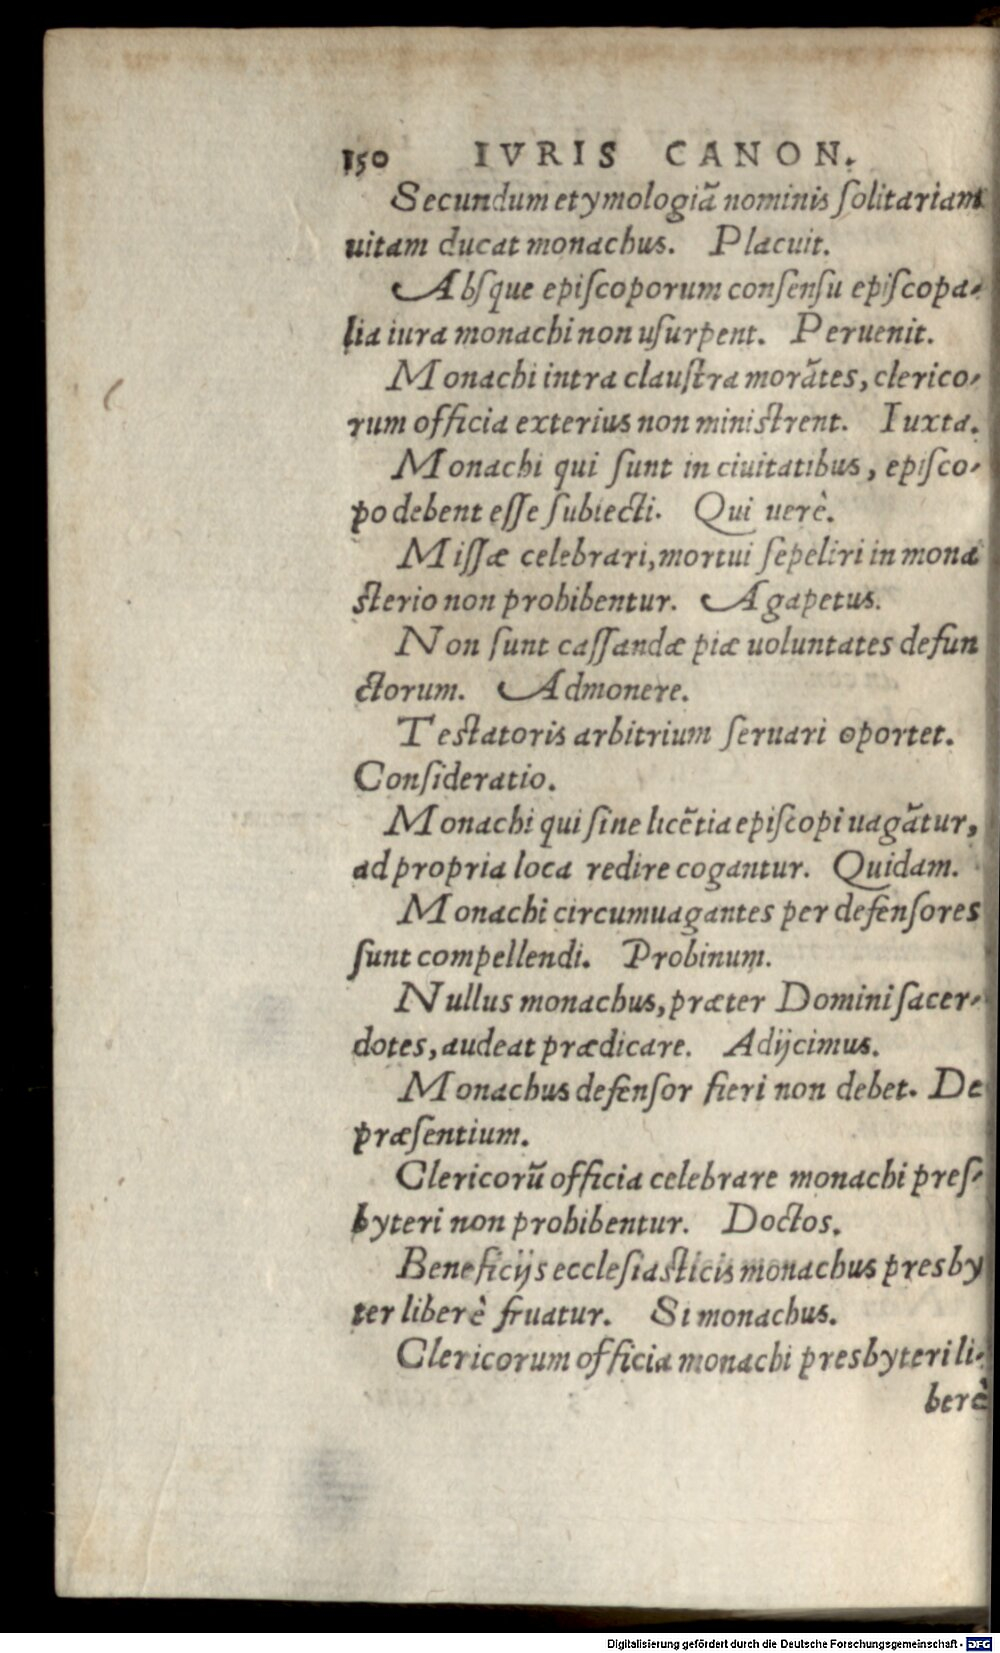 150 IVRIS CANON.
Secundum etymologiã nominis ſolitariam
uitam ducat monachus. Placuit.
Abſque epiſcoporum conſenſu epiſcopa-
lia iura monachi non uſurpent. Peruenit.
Monachi intra clauſtra morãtes, clerico-
rum officia exterius non miniſtrent. Iuxta.
Monachi qui ſunt in ciuitatibus, epiſco-
po debent eſſe ſubiecti. Qui uerè.
Miſſæ celebrari, mortui ſepeliri in mona
ſterio non prohibentur. Agapetus.
Non ſunt caſſandæ piæ uoluntates defun
ctorum. Admonere.
Teſtatoris arbitrium ſeruari oportet.
Conſideratio.
Monachi qui ſine licẽtia epiſcopi uagãtur,
ad propria loca redire cogantur. Quidam.
Monachi circumuagantes per defenſores
ſunt compellendi. Probinum.
Nullus monachus, præter Domini ſacer-
dotes, audeat prædicare. Adijcimus.
Monachus defenſor fieri non debet. De
præſentium.
Clericorũ officia celebrare monachi preſ-
byteri non prohibentur. Doctos.
Beneficijs eccleſiaſticis monachus presby
ter liberè fruatur. Si monachus.
Clericorum officia monachi presbyteri li-
berè
Digitalisierung gefördert durch die Deutsche Forschungsgemeinschaft - DFG